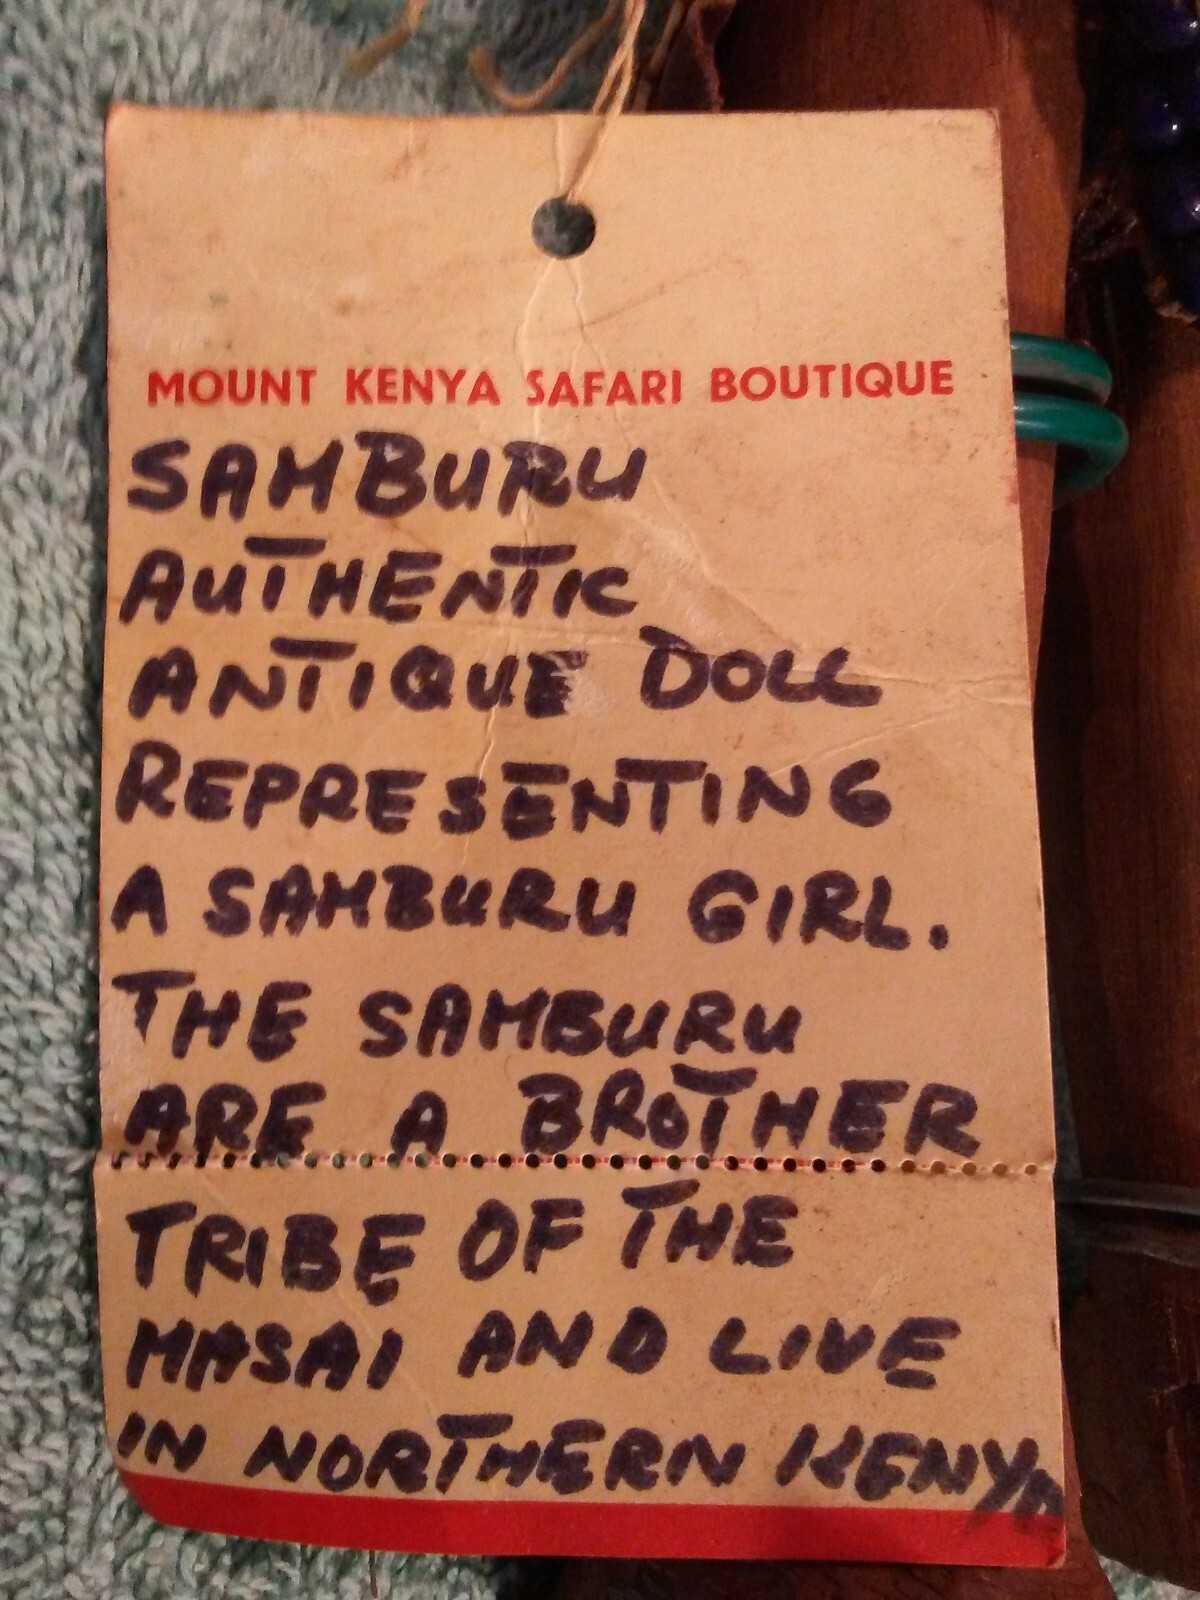 MOUNT KENYA SAFARI BOUTIQUE
SAMBURU
AUTHENTIC
ANTIQUE DOLL
REPRESENTING
A SAMBURU GIRL.
THE SAMBURU
ARE A BROTHER
TRIBE OF THE
MASAI AND LIVE
IN NORTHERN KENYA